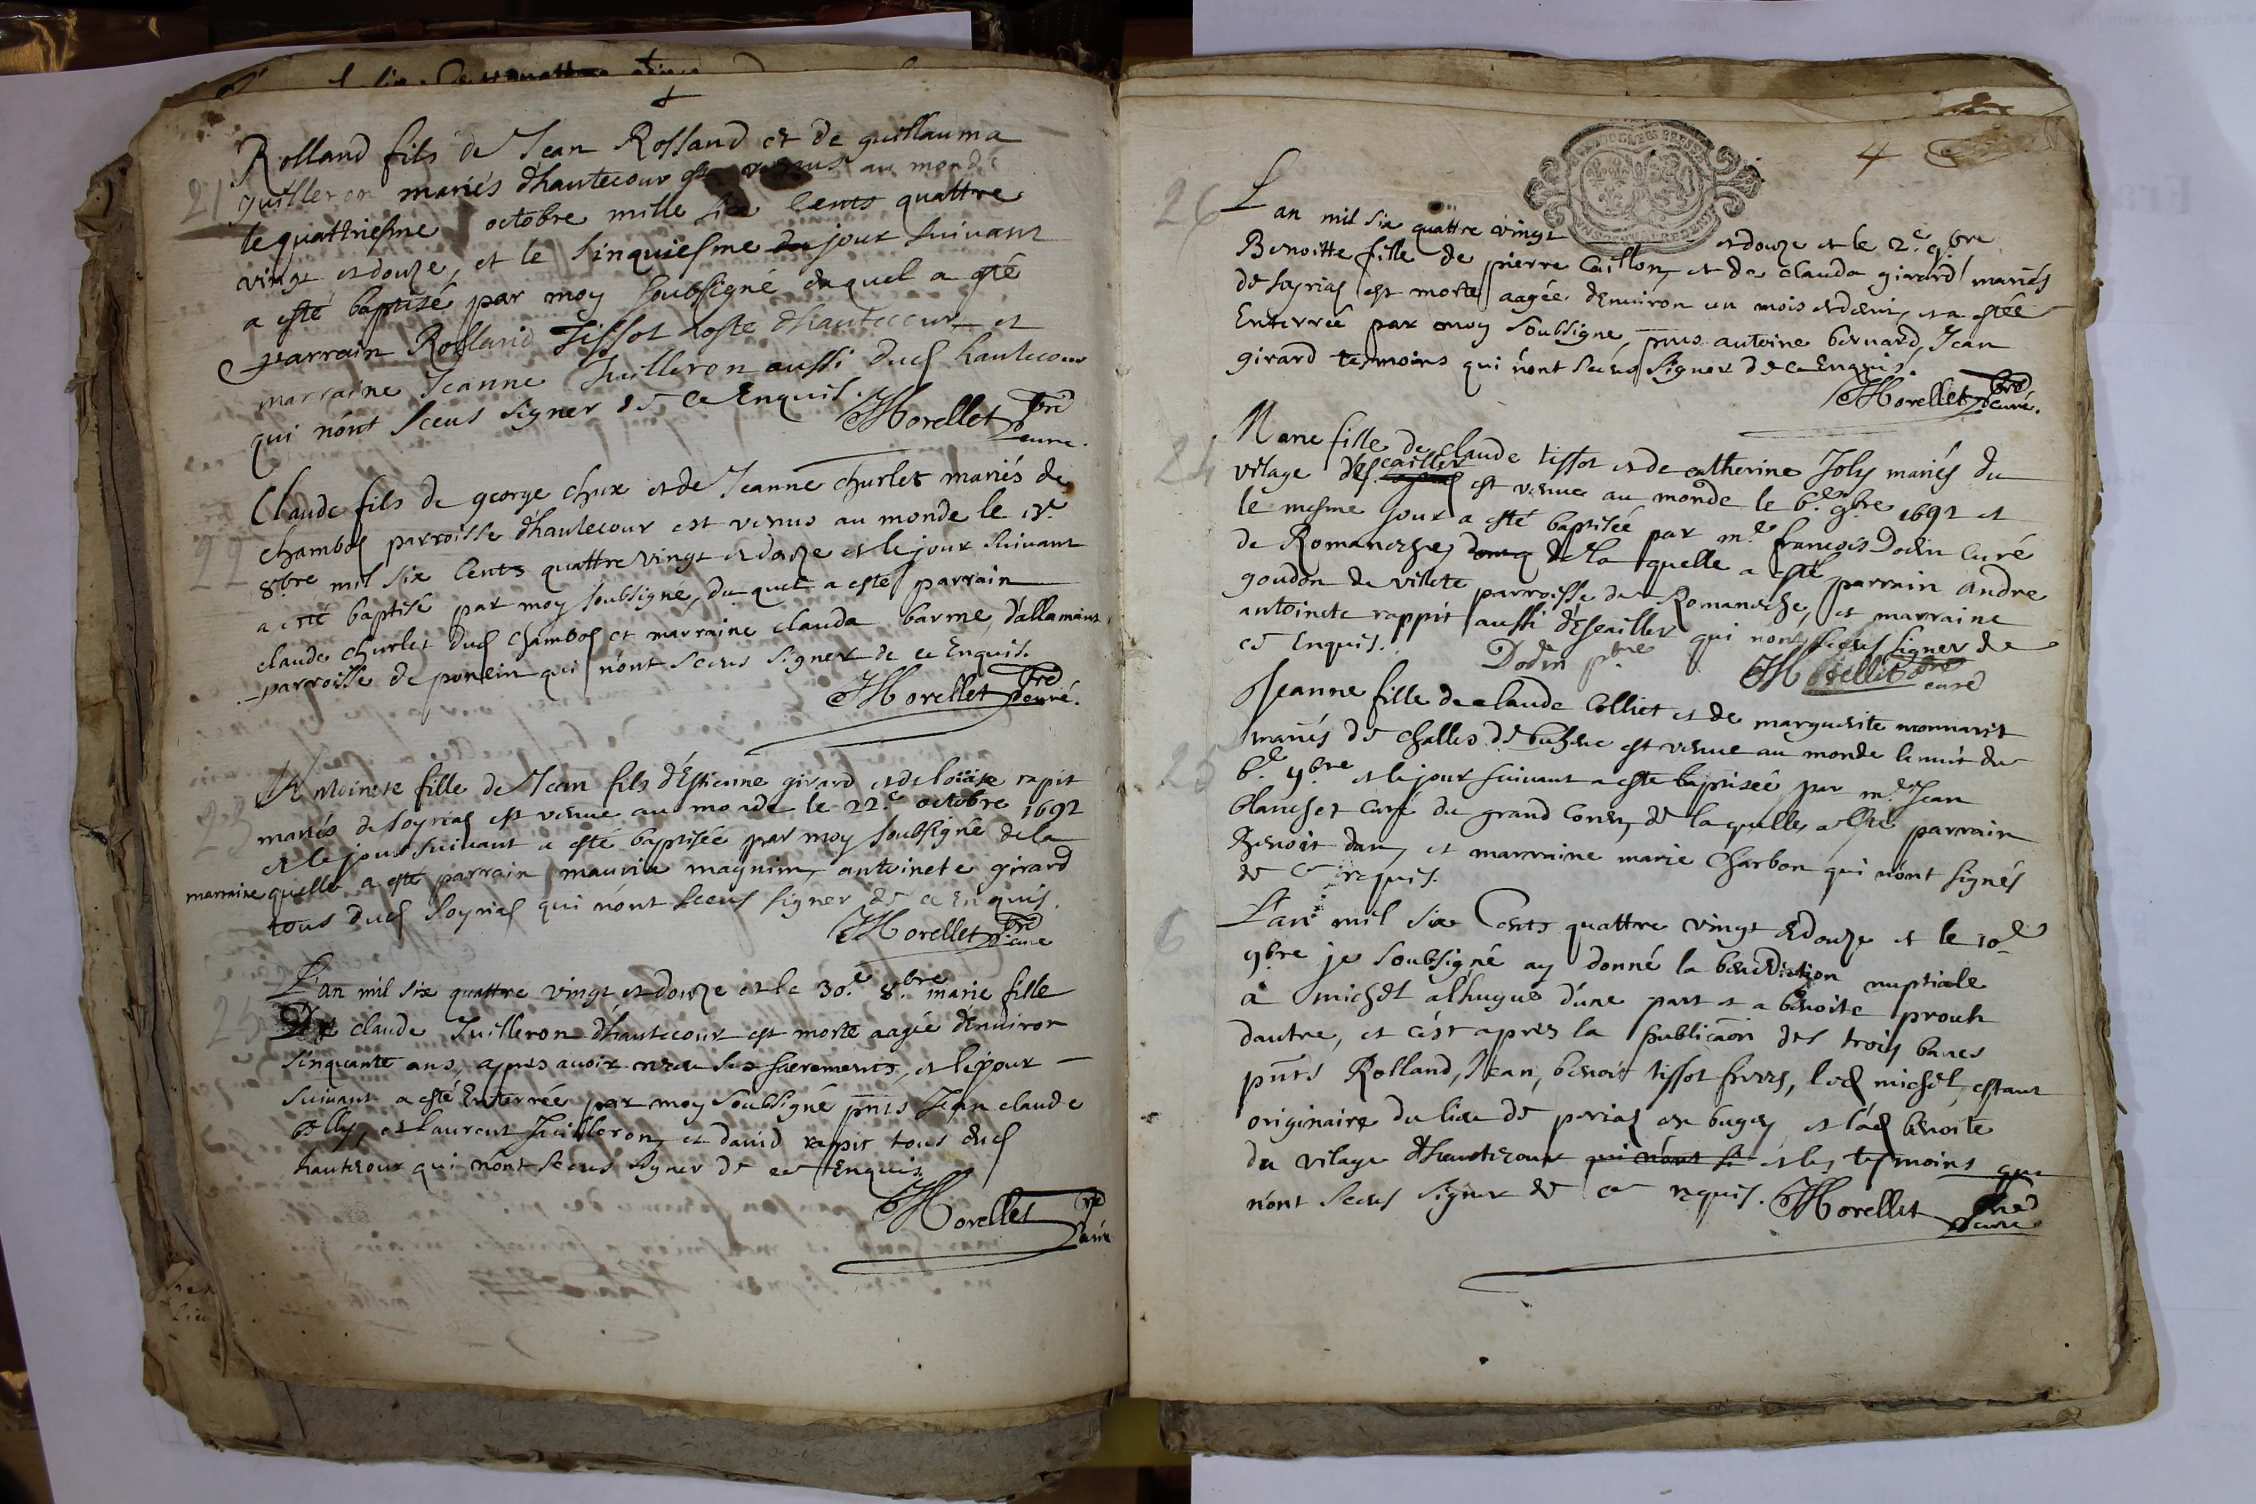 21
Rolland fils de Jean Rolland et de guillauma
Juilleron mariés d'hautecour est venus au monde
le quattriesme octobre mille six Cents quattre
vingt et douze, et le sinquiesme du jour suivant
a esté baptisé par moy soubsigné duquel a esté
parrain Rolland Tissot hoste d'hautecour et
marraine Jeanne Juilleron aussi dud hautecour
qui n'ont sceus signer de ce Enquis.
Morellet pbre curé.
22
Claude fils de george chux et de Jeanne churlet mariés de
chambod parroisse d'hautecour est venus au monde le 13e
8bre mil six Cents quattre vingt et douze et le jour suivant
a esté baptisé par moy soubsigné, duquel a esté parrain
claude churlet dud chambod et marraine clauda barme, d'allamant
parroisse de poncin qui n'ont sceus signer de ce Enquis.
Morellet pbre curé.
23
Antoinete fille de Jean fils d'Estienne girard et de loüise rapit
mariés de soyriad est venue au monde le 22e octobre 1692
et le jour suivant a esté baptisée par moy soubsigné de la
marraine quelle a esté parrain mauris magnim, antoinete girard
tous dud soyriad qui n'ont sceus signer de ce enquis.
Morellet pbre curé
25
L'an mil six quattre vingt et douze et le 30e 8bre marie fille
De claude Juilleron d'hautecour est morte aagée d'Environ
sinquante ans, apres avoir receu ses sacrements, et le jour
suivant a esté Enterrée par moy soubsigné pnts Jean claude
belly, et laurent Juilleron, et david rapit tous dud
hautecour qui n'ont sceus signer de ce Enquis
Morellet pbre curé
4
26
L'an mil six quattre vingt et douze et le 2e 9bre
Benoitte fille de pierre Caillon, et de clauda girard mariés
de soyriad est morte aagée d'Environ un mois et demi, et a estée
Enterrée par moy soubsigné, pnts antoine bernard, Jean
girard tesmoins qui n'ont sceus signer de ce Enquis.
Morellet pbre curé.
24
Marie fille de claude tissot et de catherine Joly mariés du
vilage d'Escailler est venue au monde le 6e 9bre 1692 et
le mesme jour a esté baptisée par mre françois Dodin Curé
de Romaneche, de la quelle a esté parrain andre
goudon de vilete parroisse de Romaneche, et marraine
antoinete rappit aussi d'Escailler qui n'ont sceus signer de
ce Enquis.
Dodin pbre
Morellet pbre curé
25
Jeanne fille de claude Colliet et de marguerite monnaret
mariés de challes de buhenc est venue au monde la nuit du
6e 9bre et le jour suivant a esté baptisée par mre Jean
blanchet curé du grand Coren, de laquelle a esté parrain
Benoit dam, et marraine marie charbon qui n'ont signés
de ce requis.
6
L'an mil six Cents quattre vingt Edouze et le 10e
9bre je soubsigné ay donné la benediction nuptiale
a michel alhugue d'une part et a benoite prouh
dautre, et c'est apres la publicaon des trois bancs
pnts Rolland, Jean, benoit tissot freres, led michel estant
originaire du lieu de periad en bugey et lad benoite
du vilage d'hautecour qui n'ont sc et les tesmoins que
n'ont sceus signer de ce requis. Morellet pbre curé